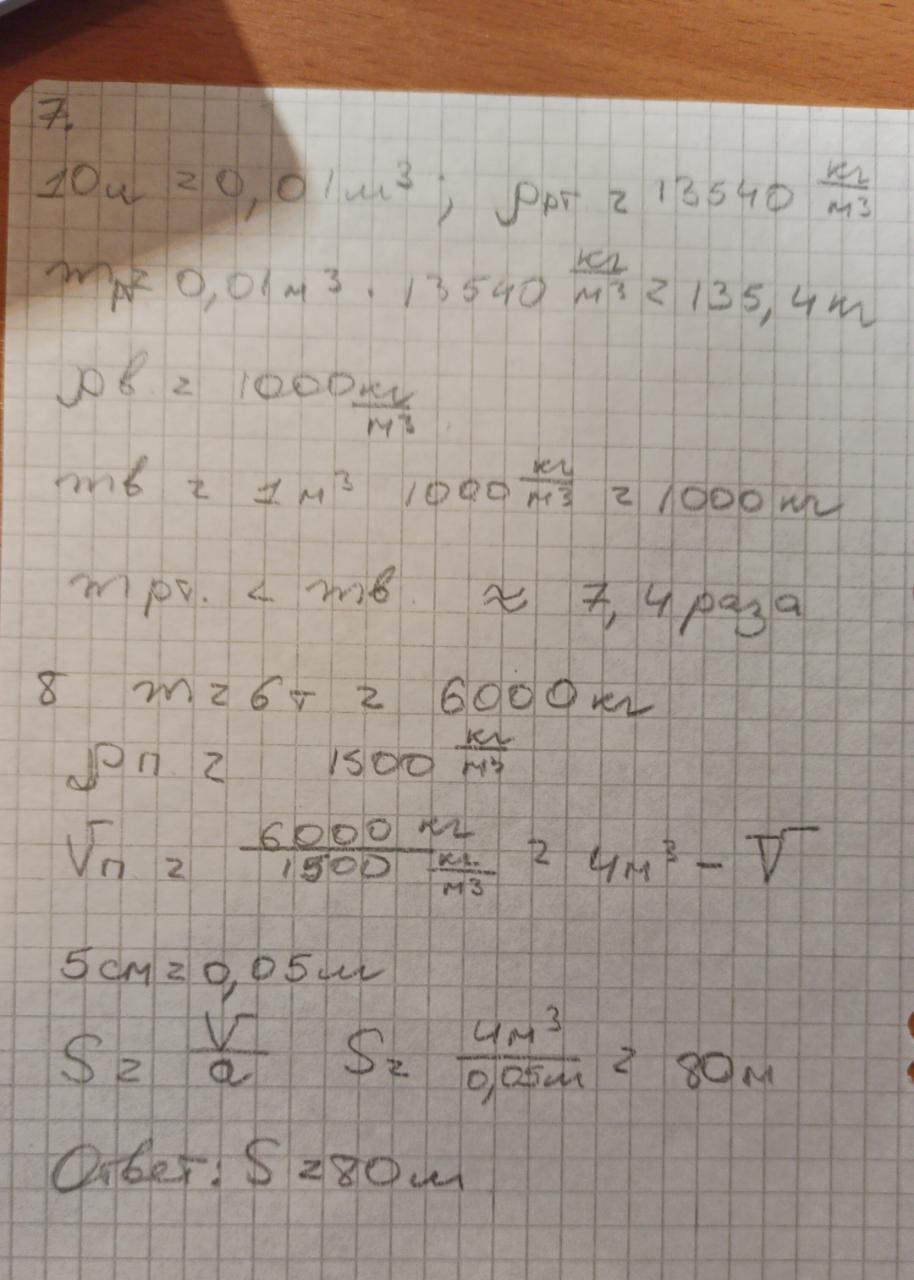 7.
10л = 0,01м³; ρрт = 13540 кг/м³
mрт = 0,01м³ · 13540 кг/м³ = 135,4кг
ρв = 1000кг/м³
mв = 1м³ 1000 кг/м³ = 1000кг
mрт. < mв ≈ 7,4 раза
8 m = 6т = 6000кг
ρп = 1500 кг/м³
Vп = 6000 кг/1500 кг/м³ = 4м³ - V
5см = 0,05м
S = V/a S = 4м³/0,05м = 80м
Ответ: S = 80м